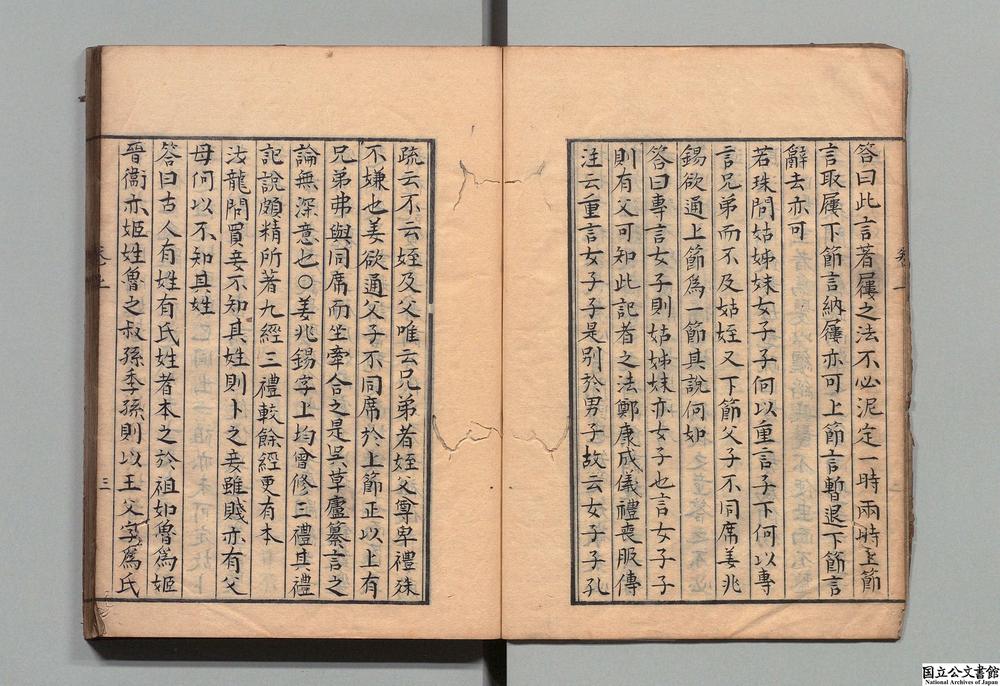 答曰此言著屨之法不必泥定一時兩時上節
言取屨下節言納屨亦可上節言暫退下節言
辭去亦可
若珠問姑姊妹女子子何以重言子下何以專
言兄弟而不及姑姪又下節父子不同席姜兆
錫欲通上節爲一節其說何如
答曰專言女子則姑姊妹亦女子也言女子子
則有父可知此記者之法鄭康成儀禮喪服傳
注云重言女子子是別於男子故云女子子孔
疏云不云姪及父唯云兄弟者姪父尊卑禮殊
不嫌也姜欲通父子不同席於上節正以上有
兄弟弗與同席而坐牽合之是吳草廬纂言之
論無深意也○姜兆錫字上均曾修三禮其禮
記說頗精所著九經三禮較餘經更有本
汝龍問買妾不知其姓則卜之妾雖賤亦有父
母何以不知其姓
答曰古人有姓有氏姓者本之於祖如魯爲姬
晉衞亦姬姓魯之叔孫季孫則以王父字爲氏
三
国立公文書館
National Archives of Japan